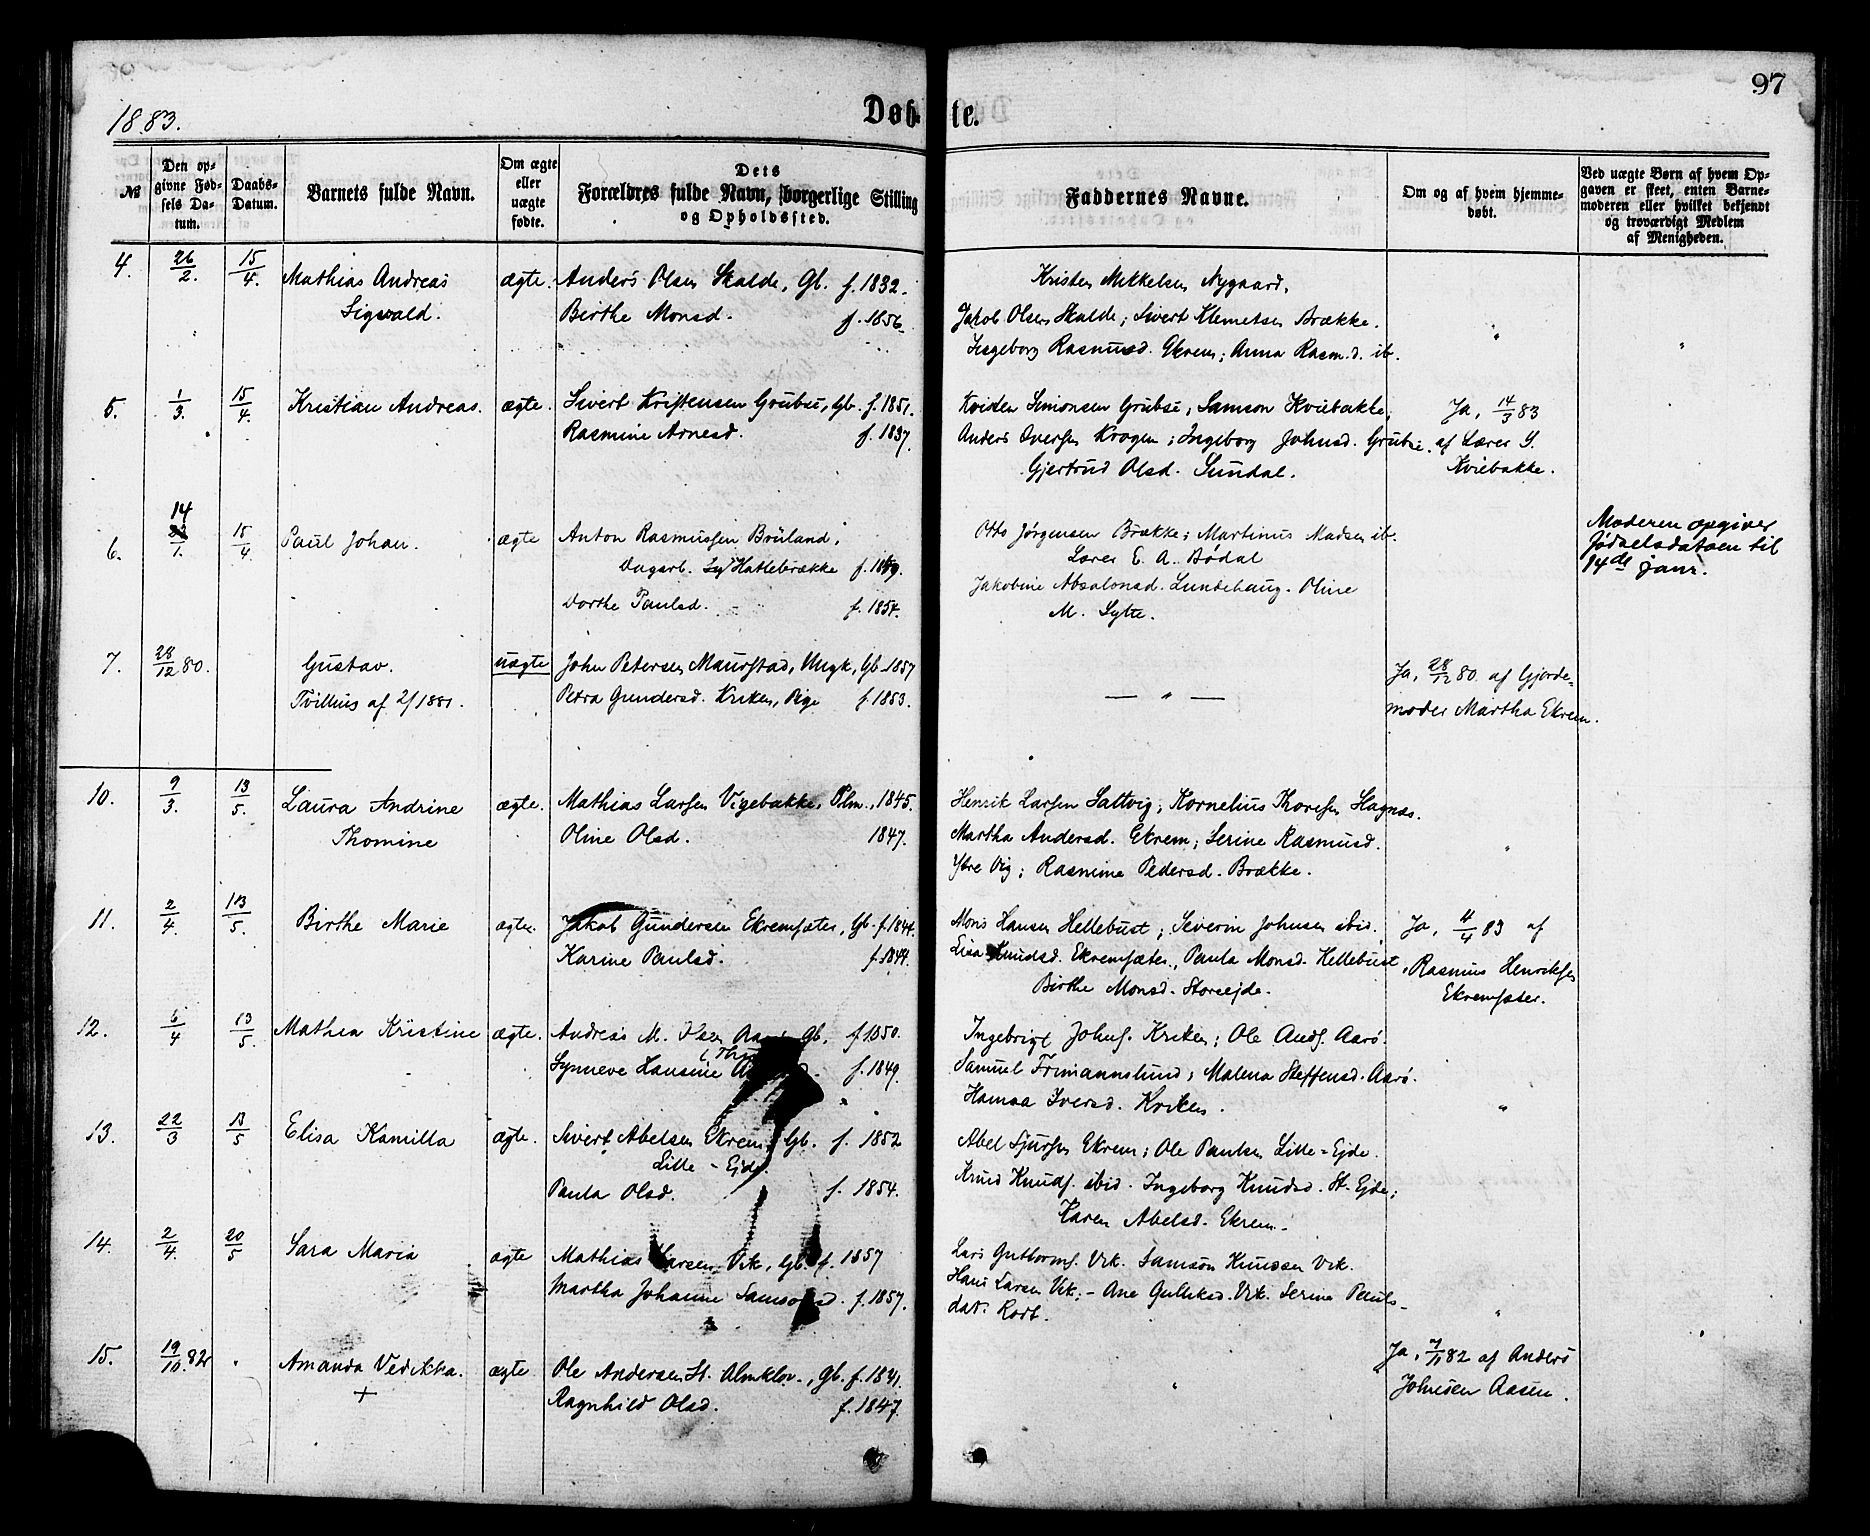 97
1883.
Døb te.
№
Den op-
givne Fød-
sels Da-
tum.
Daabs-
Datum.
Barnets fulde Navn.
Om ægte
eller
uægte
fødte.
Dets
Forældres fulde Navn, borgerlige Stilling
og Opholdssted.
Faddernes Navne.
Om og af hvem hjemme-
døbt.
Ved uægte Børn af hvem Op-
gaven er skeet, enten Barne-
moderen eller hvilket bekjendt
og troværdigt Medlem
af Menigheden.
4. 26/2. 15/4. Mathias Andreas ægte. Anders Olsen Skalde, Gb. f. 1832. Kristen Mekkelsen Nygaard.
Sigvald. Birthe Monsd. f. 1856. Jakob Olsen Skalde; Sivert Klemetsen Brække. "
Ingeborg Rasmusd. Ekrem; Anna Rasm.d. ib. "
5. 1/3. 15/4. Kristian Andreas. ægte. Sivert Kristensen Grubse, Gb. f. 1851. Kristen Simonsen Grubse; Samson Kviebakke, Ja, 14/3 83
Rasmine Arnesd. f. 1837. Anders Iversen Krogen; Ingeborg Johnsd. Grubse. af Lærer S.
Gjertrud Olsd. Sundal. Kviebakke.
14
6. 1. 15/4. Paul Johan. ægte Anton Rasmussen Brüland, Otto Jørgensen Brække; Martinus Madsen ib. Moderen opgiver
Dagarb. Hatlebrække f. Lærer E. A. Bødal fødselsdatoen til
Dorthe Paulsd. f. 1854. Jakobine Absalonsd. Lundehaug. Oline 14de Janr.
M. Sylte.
7. 28/12 80. Gustav. uægte John Petersen Maurstad, Ungk, Gb. 1857 Ja, 28/12 80. af Gjorde-
Tvilling af 2/1881. Petra Gundersd. Kriken, Pige f. 1853. — " — moder Martha Ekrem.
10. 9/3. 13/5. Laura Andrine ægte. Mathias Larsen Vigebakke, 1845. Henrik Larsen Sattvig; Kornelius Thoresen Hagnæs.
Thomine Oline Olsd. 1847. Martha Andersd. Ekrem; Serine Rasmusd. "
Ytre Vig; Rasmine Pedersd. Brække.
11. 2/4. 13/5. Birthe Marie ægte. Jakob Gundersen Ekremsæter, Gb. f. 1844. Mons Hansen Hellebust; Severin Johnsen ibid. Ja, 4/4 83 af
Karine Paulsd. f. 1844. Lisa Knudsd. Ekremsæter, Paula Monsd. Hellebust, Rasmus Henriksen
Birthe Monsd. Storeejde. Ekremsæter.
12. 6/4 13/5. Mathea Kristine ægte. Andreas M. Gb. f. 1850. Ingebrigt Johns. Kriken; Ole Ands. Aarø.
Synneve Hansine f. 1849. Samuel Frimannslund; Malena Steffensd. Aarø.
Hansa Iversd. Kriken. "
13. 22/3 13/5 Elisa Kamilla ægte. Sivert Abelsen Ekrem, Gb. f. 1852 Abel Sjursen Ekrem; Ole Paulsen Lille-Ejde.
Lille-Ejde. Knud Knuds. ibid. Ingeborg Knudsd. St. Ejde;
Paula Olsd. f. 1854. Karen Abelsd. Ekrem.
14. 2/4. 20/5 Sara Maria ægte Mathias Larsen Vik, Gb. f. 1857 Lars Guttorms. Vik. Samson Knudsen Vik.
Martha Johanne Samsonsd. f. 1857. Hans Larsen Vik; - Ane Gulliksd. Vik. Serine Pauls-
dat. "
15. 19/10. 82 " Amanda Vedikka. ægte. Ole Andersen St. Almklov, Gb. f. 1841. Ja, 7/11 82 af Anders
+ Ragnhild Olsd. f. 1847. " Johnsen Aasen.